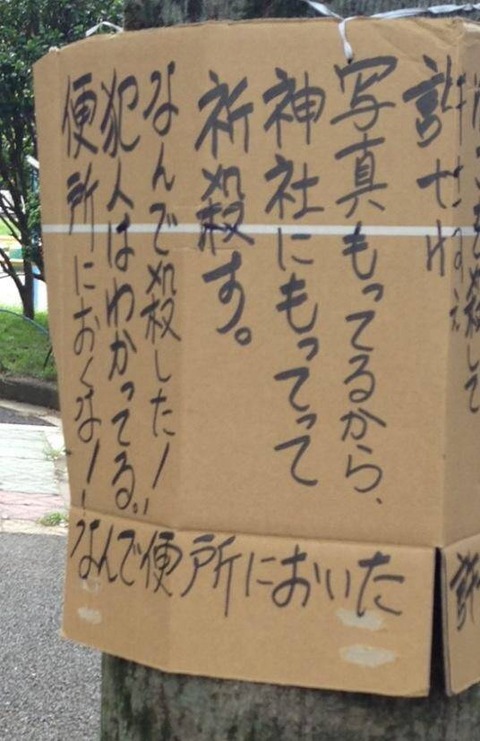 殺して
許せね
写真もってるから、
神社にもってって
祈殺す。
なんで殺した!
犯人はわかってる。
便所におくな!!
なんで便所においた
許